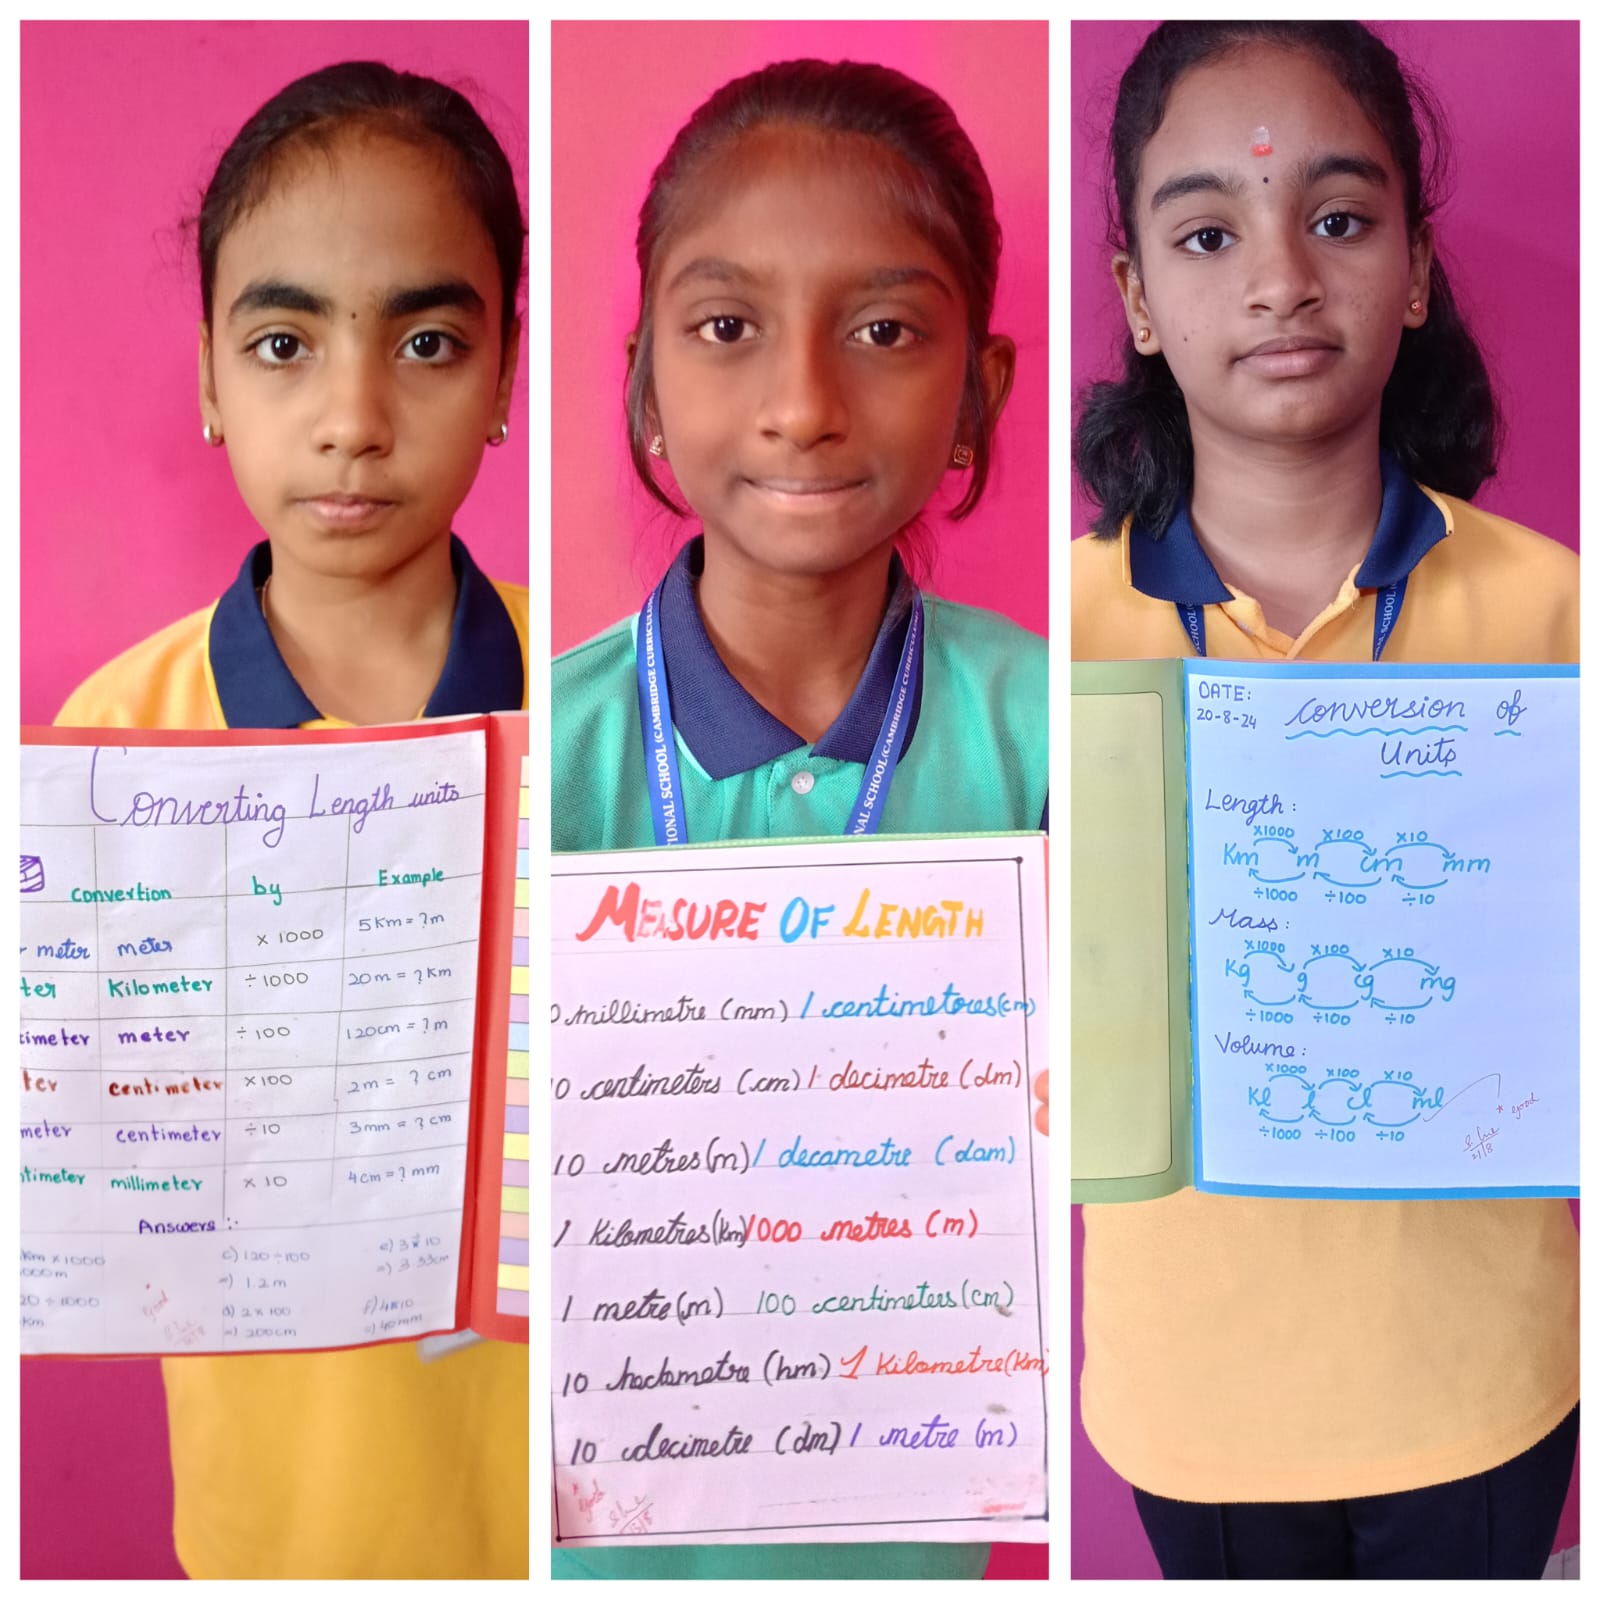 Converting Length units
Convertion by Example
meter meter × 1000 5 Km = ? m
ter Kilometer ÷ 1000 20 m = ? Km
timeter meter ÷ 100 120 cm = ? m
ter centimeter × 100 2 m = ? cm
meter centimeter ÷ 10 3 mm = ? cm
timeter millimeter × 10 4 cm = ? mm
Answers :-
Km × 1000
000 m
20 ÷ 1000
Km
good
c) 120 ÷ 100
⇒ 1.2 m
d) 2 × 100
⇒ 200 cm
⇒ 3.33 cm
⇒ 40 mm
IONAL SCHOOL (CAMBRIDGE CURRICULUM
NAL SCHOOL (CAMBRIDGE CURRICULUM
MEASURE OF LENGTH
0 millimetre (mm) 1 centimetores (cm)
0 centimeters (cm) 1 decimetre (dm)
10 metres (m) 1 decametre (dam)
1 Kilometres (km) 1000 metres (m)
1 metre (m) 100 centimeters (cm)
10 hectometre (hm) 1 Kilometre (Km)
10 decimetre (dm) 1 metre (m)
good
SCHOOL
SCHOOL
DATE:
20-8-24
Conversion of
Units
Length :
×1000 ×100 ×10
Km m cm mm
÷1000 ÷100 ÷10
Mass :
×1000 ×100 ×10
Kg g cg mg
÷1000 ÷100 ÷10
Volume :
×1000 ×100 ×10
Kl l cl ml
÷1000 ÷100 ÷10
* good
21/8